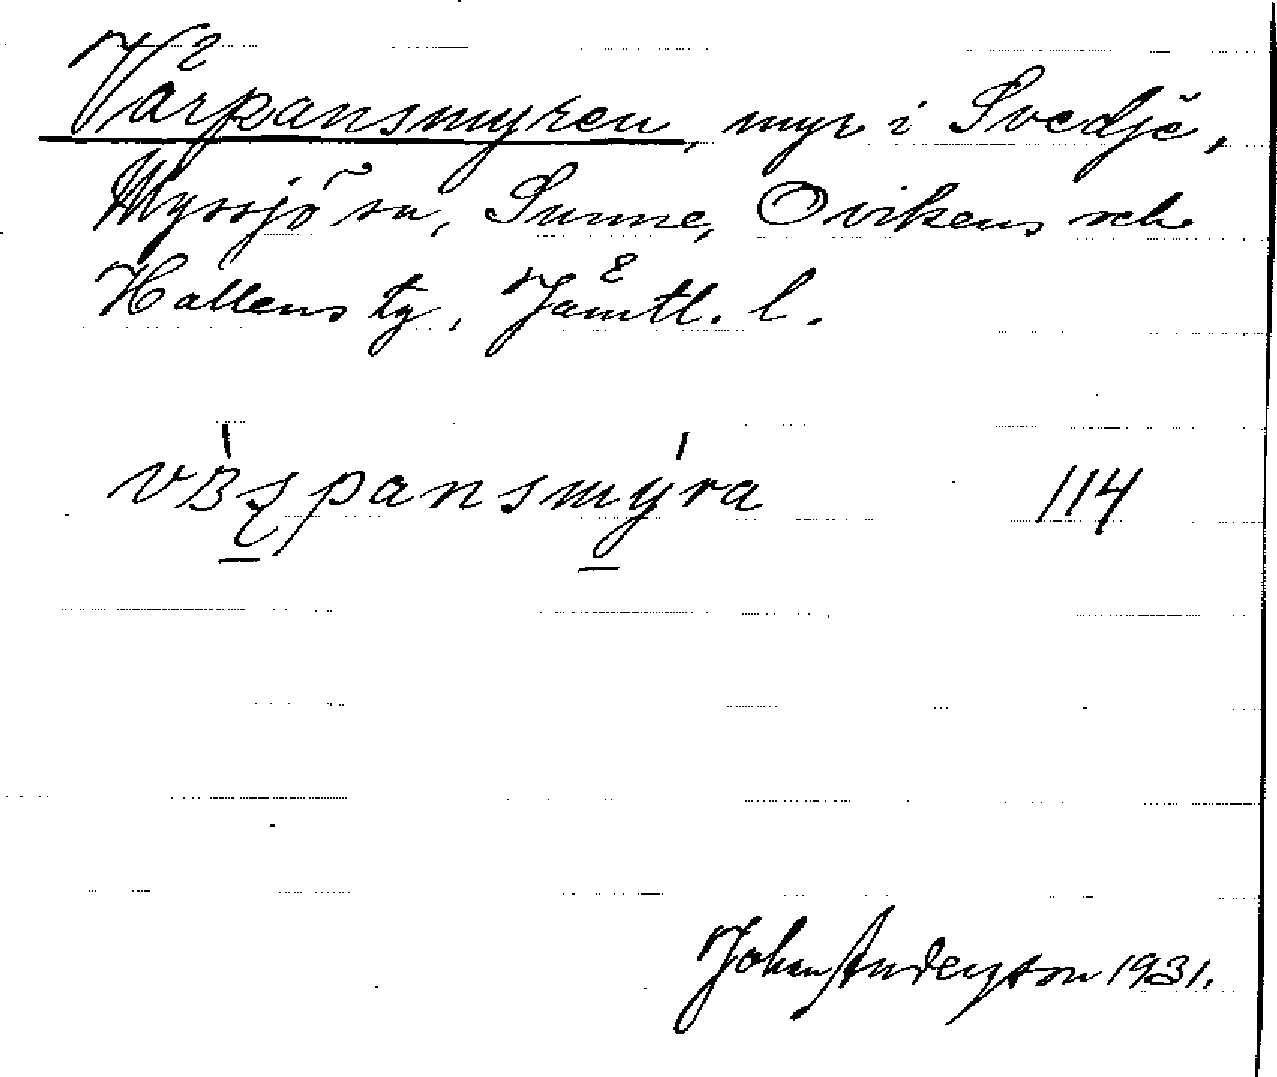 Värpansmyren, myr i Svedje,
Myssjö sn, Sunne, Ovikens och
Hallens tg, Jämtl. l.
pansmỳra 114
Johan Anderson 1931.